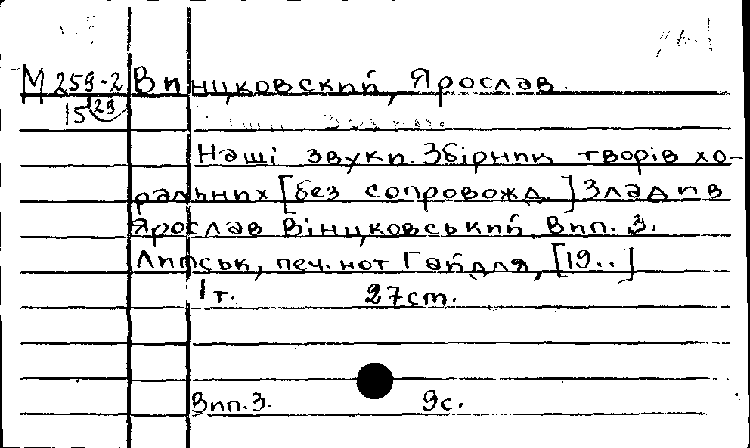 М 259-2 Винцковский, Ярослав.
15 29
Наші звуки. Збірник творів хо-
ральних [без сопровожд.] Зладив
Ярослав Вінцковський. Вип. 3.
Липськ, печ. нот Гайдля, [19..]
1 т. 27 ст.
Вип. 3. 9 с.